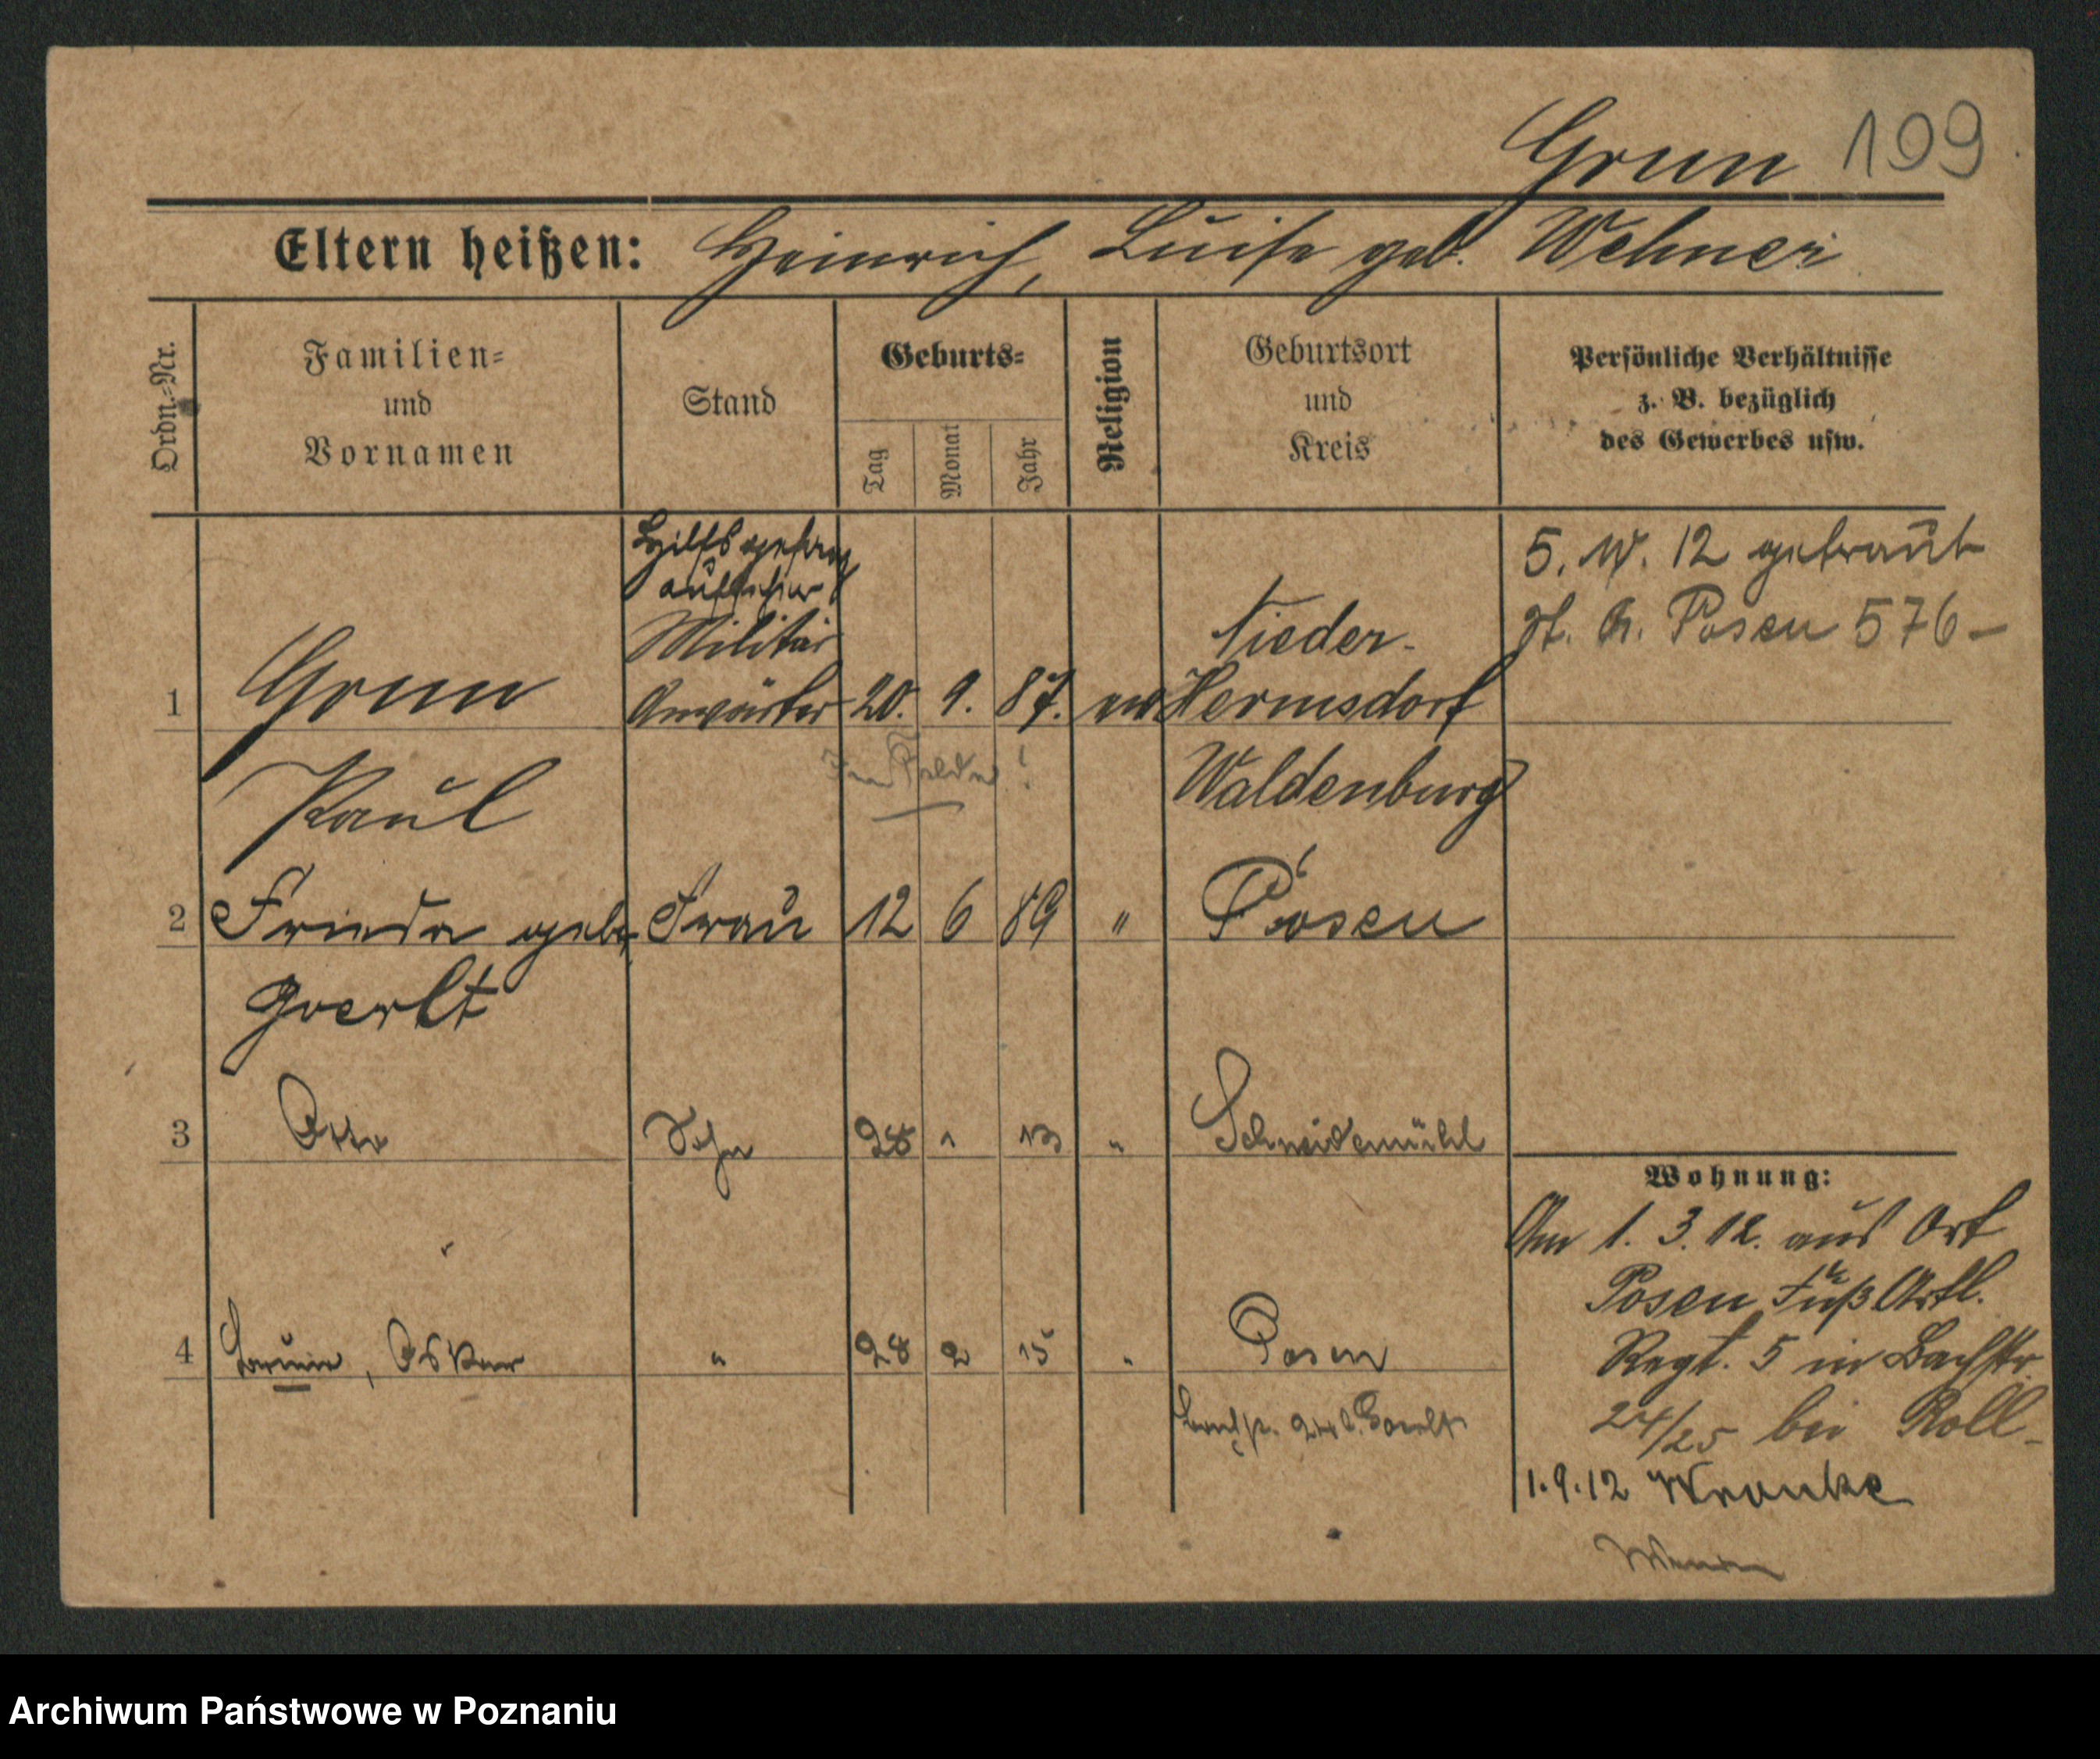 Grun 199
Eltern heißen: Heinrich, Luise geb. Wehner
Ordn.-Nr.
Familien-
und
Vornamen
Stand
Geburts-
Tag
Monat
Jahr
Religion
Geburtsort
und
Kreis
Persönliche Verhältnisse
z. B. bezüglich
des Gewerbes usw.
Hilfsgefang
aufseher
Militär
5. IV. 12 getraut
St. A. Posen 576-
Nieder-
1 Grun Anwärter 20. 9. 87. ev Hermsdorf
Im Felde!
Paul Waldenburg
2 Frieda geb. Frau 12 6 89 " Posen
Goerlt
3 Otto Sohn 28 1 13 " Schneidemühl
Wohnung:
Am 1. 3. 12. aus Ort
Posen Fuß Artl.
Regt. 5 in Bachstr.
24/25 bei Roll-
4 Bruno, Oskar " 28 2 15 " Posen
Goerlt
1.9.12 Wronke
Archiwum Państwowe w Poznaniu